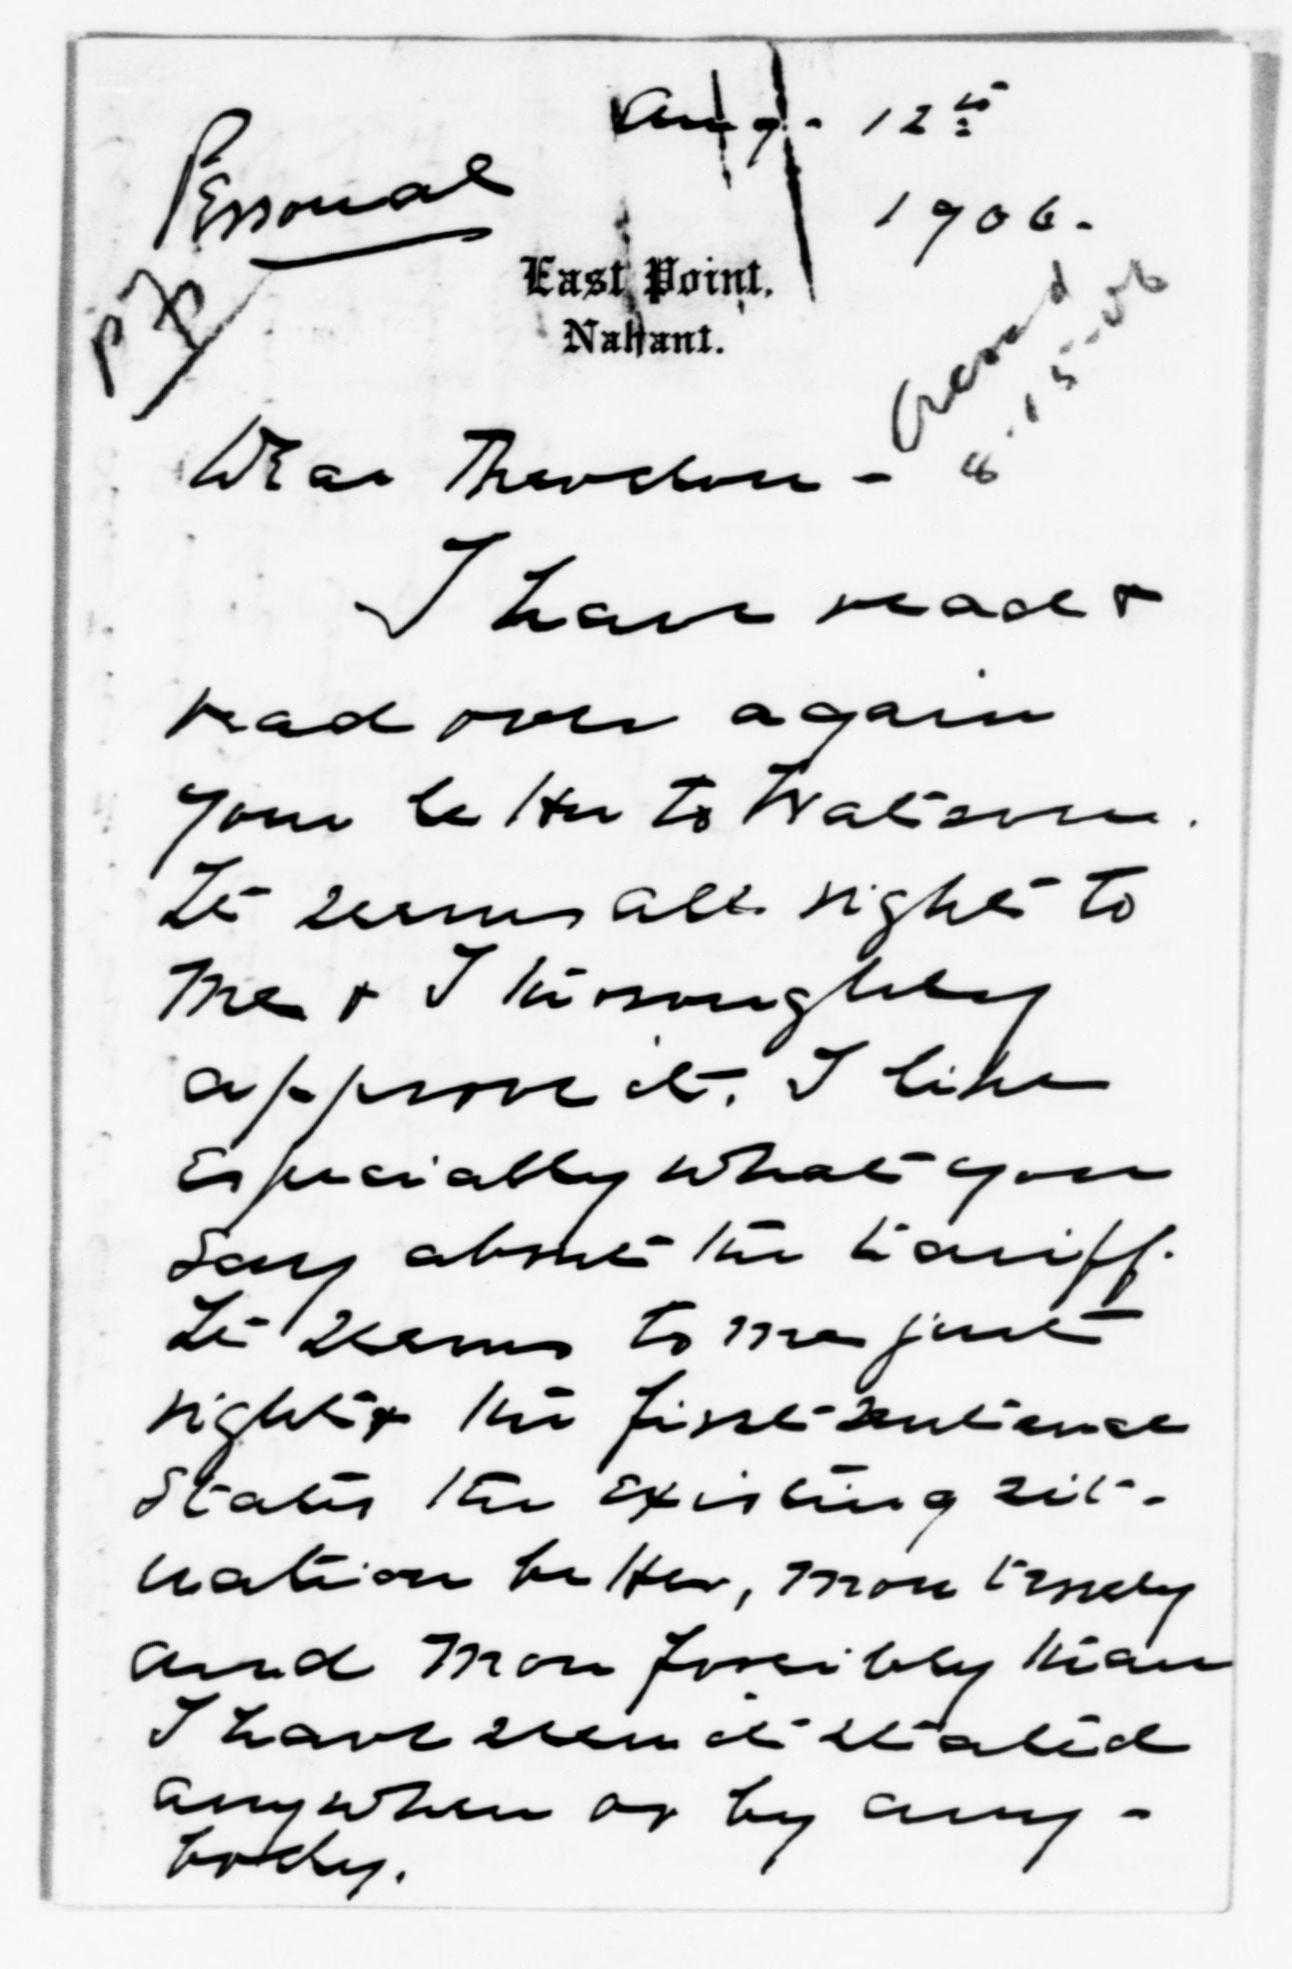 Aug. 12th
1906.
Personal
PF
East Point,
Nahant.
Dear Theodore -
I have read &
read over again
your letter to Watson.
It seems all right to
me & I thoroughly
approve it. I like
especially what you
say about the tariff.
It seems to me just
right & the first sentence
states the existing sit-
uation better, more tersely
and more forcibly than
I have seen it stated
anywhere or by any-
body.
8-15-06